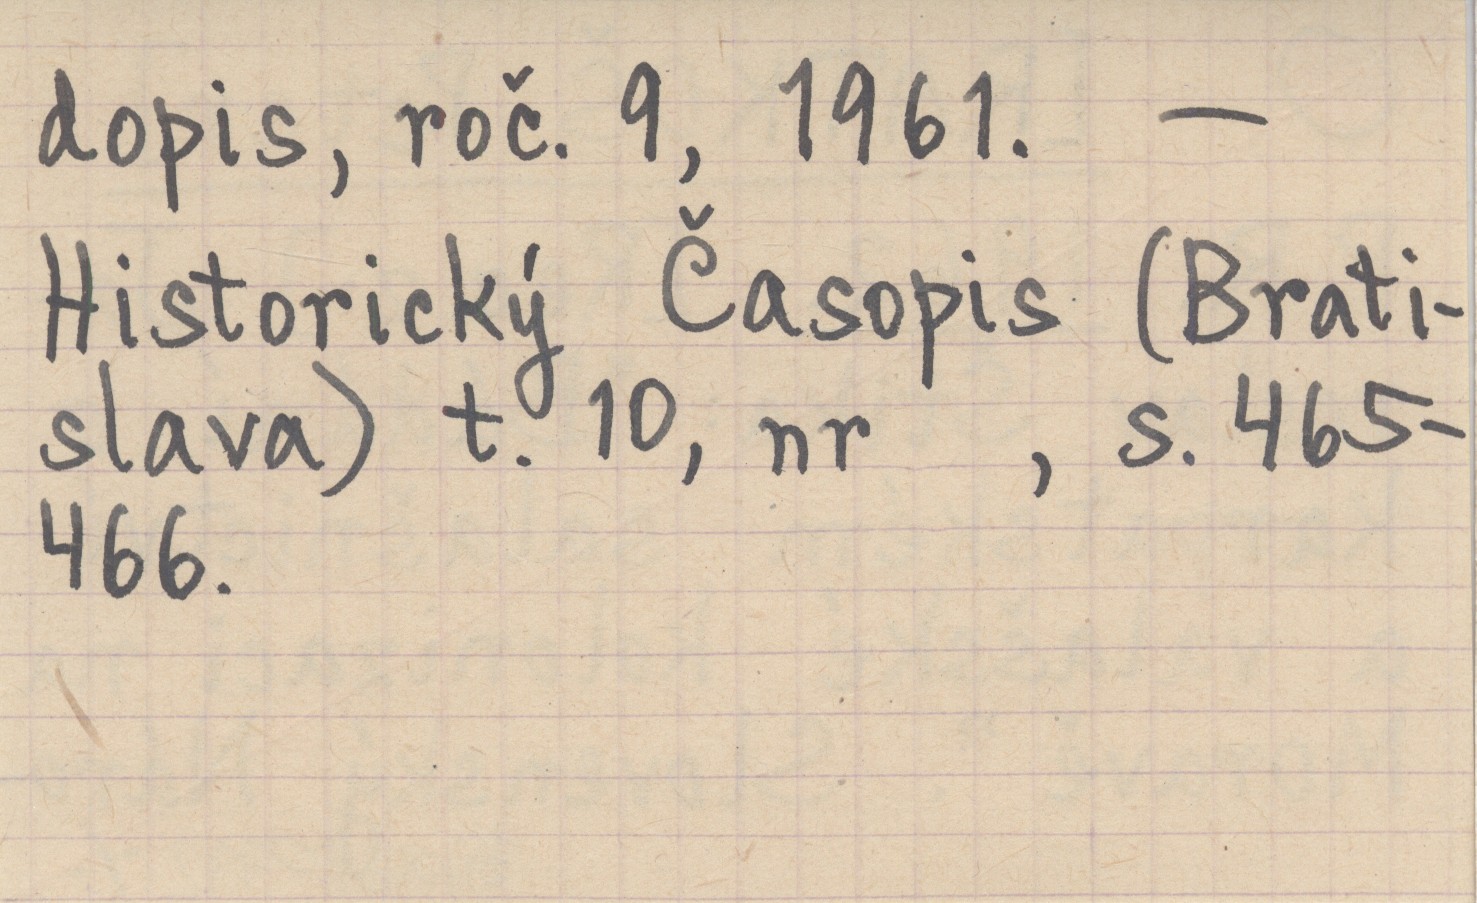 dopis, roč. 9, 1961. —
Historický Časopis (Brati-
slava) t. 10, nr , s. 465-
466.